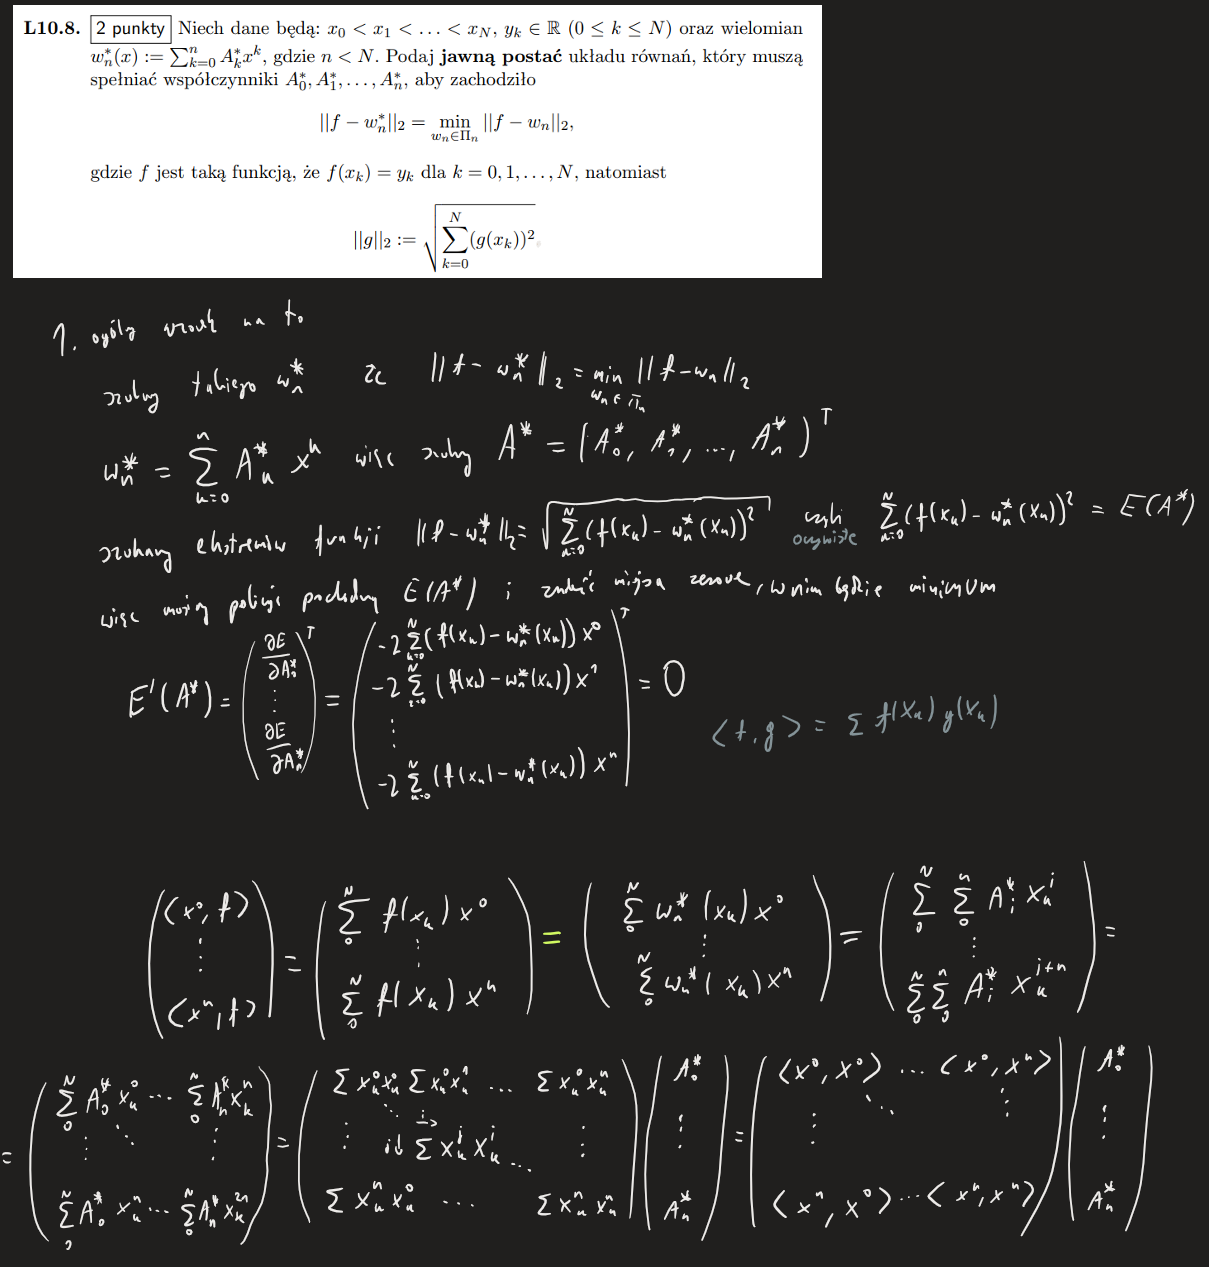 L10.8. 2 punkty Niech dane będą: x₀ < x₁ < … < x_N, y_k ∈ ℝ (0 ≤ k ≤ N) oraz wielomian
w*_n(x) := ∑_{k=0}^{n} A*_k x^k, gdzie n < N. Podaj jawną postać układu równań, który muszą
spełniać współczynniki A*_0, A*_1, …, A*_n, aby zachodziło
||f − w*_n||₂ = min_{w_n∈Π_n} ||f − w_n||₂,
gdzie f jest taką funkcją, że f(x_k) = y_k dla k = 0, 1, …, N, natomiast
||g||₂ := √(∑_{k=0}^{N} (g(x_k))²)
1. ogólny wzorek na to
szukamy takiego w*_n że ||f − w*_n||₂ = min_{w_n∈Π_n} ||f − w_n||₂
w*_n = ∑_{k=0}^{n} A*_k x^k więc szukamy A* = (A*_0, A*_1, ..., A*_n)^T
szukamy ekstremów funkcji ||f − w*_n||₂ = √(∑_{k=0}^{N} (f(x_k) − w*_n(x_k))²) czyli oczywiście ∑_{k=0}^{N} (f(x_k) − w*_n(x_k))² = E(A*)
więc możemy policzyć pochodną E(A*) i znaleźć miejsca zerowe, w nim będzie minimum
E'(A*) = (∂E/∂A*_0 ⋮ ∂E/∂A*_n)^T = (−2∑_{k=0}^{N} (f(x_k) − w*_n(x_k)) x⁰ −2∑_{k=0}^{N} (f(x_k) − w*_n(x_k)) x¹ ⋮ −2∑_{k=0}^{N} (f(x_k) − w*_n(x_k)) x^n)^T = 0
⟨f, g⟩ = ∑ f(x_k) g(x_k)
(⟨x⁰, f⟩ ⋮ ⟨x^n, f⟩) = (∑_0^N f(x_k) x⁰ ⋮ ∑_0^N f(x_k) x^n) = (∑_0^N w*_n(x_k) x⁰ ⋮ ∑_0^N w*_n(x_k) x^n) = (∑_0^N ∑_0^n A*_i x_k^i ⋮ ∑_0^N ∑_0^n A*_i x_k^{i+n}) =
= (∑_0^N A*_0 x_k^0 ⋯ ∑_0^N A*_n x_k^n ⋮ ⋱ ⋮ ∑_0^N A*_0 x_k^n ⋯ ∑_0^N A*_n x_k^{2n}) = (∑ x_k^0 x_k^0 ∑ x_k^0 x_k^1 ... ∑ x_k^0 x_k^n ⋮ i→ j↓ ∑ x_k^j x_k^i ... ⋮ ∑ x_k^n x_k^0 ... ∑ x_k^n x_k^n) (A*_0 ⋮ A*_n) = (⟨x⁰, x⁰⟩ ... ⟨x⁰, x^n⟩ ⋮ ⋱ ⋮ ⟨x^n, x⁰⟩ ... ⟨x^n, x^n⟩) (A*_0 ⋮ A*_n)